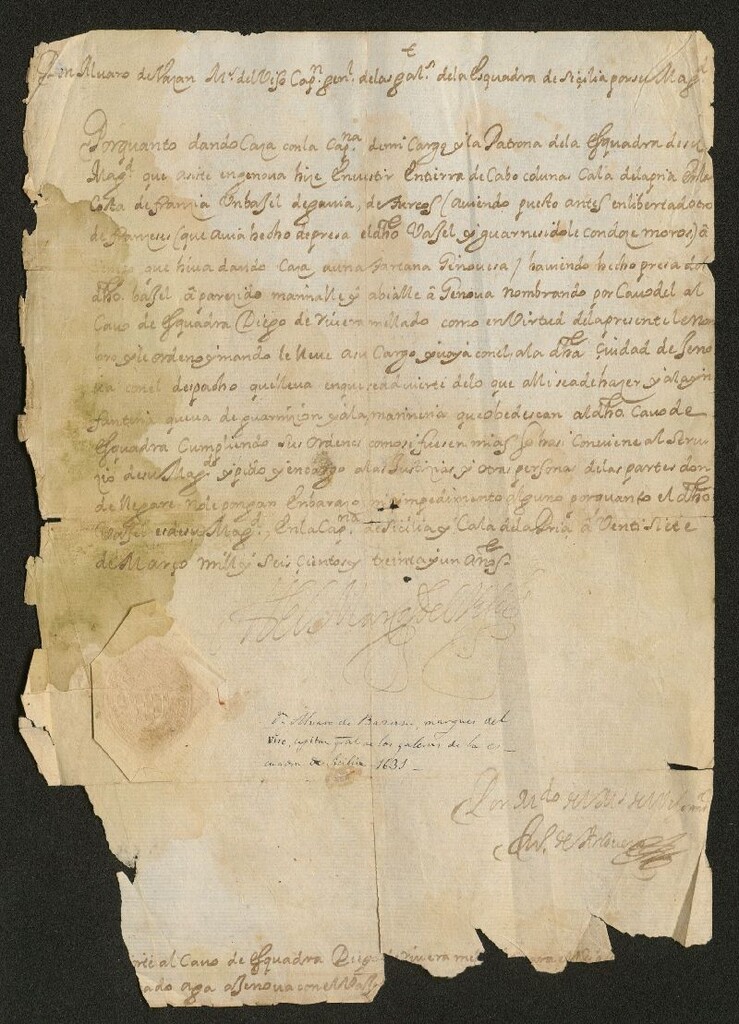 Don Alvaro de Baçan Mr. del Viso Capn. genl. de las galrs. de la Esquadra de Siçilia por su Magd.
Porquanto dando Caza con la Capna. de mi Cargo y la Patrona de la Esquadra de su
Magd. que asiste en genova hize Envestir En tierra de Cabo colunas Cala de la pria En la
Costa de françia Un basel de gavia, de turcos (aviendo puesto antes en libertad otro
de françeses (que avia hecho de presa el dho. Vassel y guarnesidole con doze moros) a
que hiva dando Caza a una tartana Ginovesa) haviendo hecho presa
dho. basel a pareçido marinalle y abialle a Genova nombrando por Cavo del al
Cavo de Esquadra Diego de Rivera mellado como en Virtud de la presente le nom
bro y le ordeno y mando le lleve a su Cargo y vaya con el a la dha. Çiudad de Geno
va con el despacho que lleva en que se advierte de lo que alli se a de hazer y a la yn
fanteria que va de guarniçion y a la marineria que obedescan al dho. Cavo de
Esquadra Cumpliendo sus ordenes como si fuesen mias Conviene al Servi
çio de su Magd. y pido y encargo a las Justiçias y otras persona de las partes don
de llegare no le pongan Enbarazo ni ympedimento alguno porquanto el dho.
Vassel es de su Magd., En la Capna. de Siçilia y Cala de la Pria. a Venti Siete
de Março mill y Seis Çientos y treinta y un años.
El Marqs. del Viso
Dn. Alvaro de Bazan, marques del
Viso, capitan gral de las galeras de la es-
cuadra de Sicilia 1631-
Por Mdo. del
al Cavo de Esquadra Diego de Rivera
a Genova con el Vass